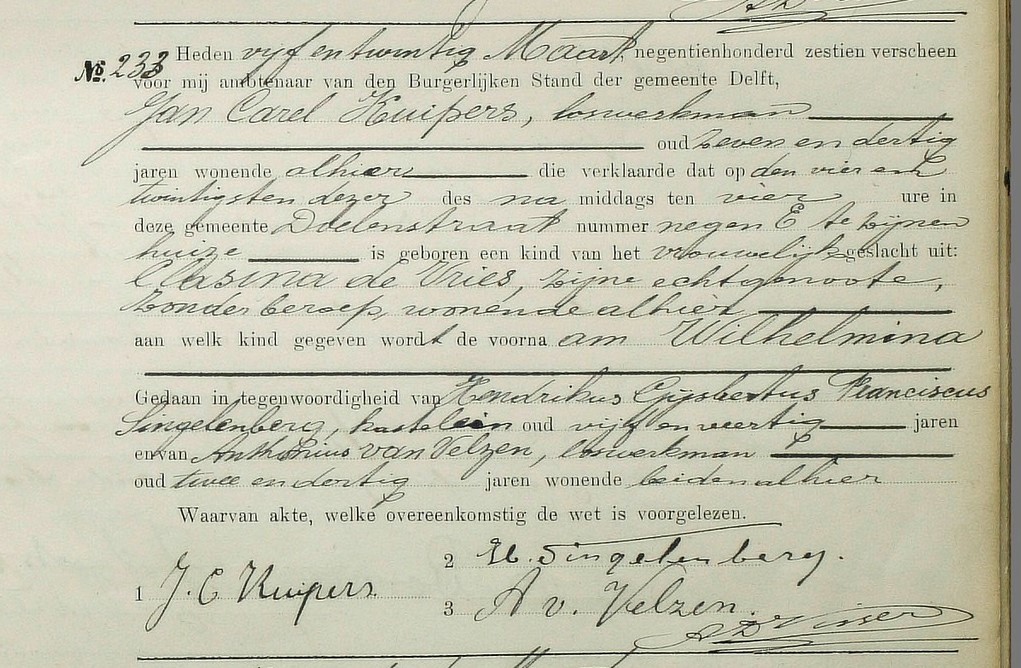 No. 233 Heden vijf en twintig Maart negentienhonderd zestien verscheen
voor mij ambtenaar van den Burgerlijken Stand der gemeente Delft,
Jan Carel Kuipers, loswerkman
oud zeven en dertig
jaren wonende alhier die verklaarde dat op den vier en
twintigsten dezer des na middags ten vier ure in
deze gemeente Doelenstraat nummer negen E te zijnen
huize is geboren een kind van het vrouwelijk geslacht uit:
Clasina de Vries, zijne echtgenoote,
zonder beroep, wonende alhier
aan welk kind gegeven wordt de voorna am Wilhelmina
Gedaan in tegenwoordigheid van Hendrikus Gijsbertus Franciscus
Singelenberg, kastelein oud vijf en veertig jaren
en van Anthonius van Velzen, loswerkman
oud twee en dertig jaren wonende beiden alhier
Waarvan akte, welke overeenkomstig de wet is voorgelezen.
2 H. Singelenberg.
1 J. C Kuipers
3 A v. Velzen.
Visser